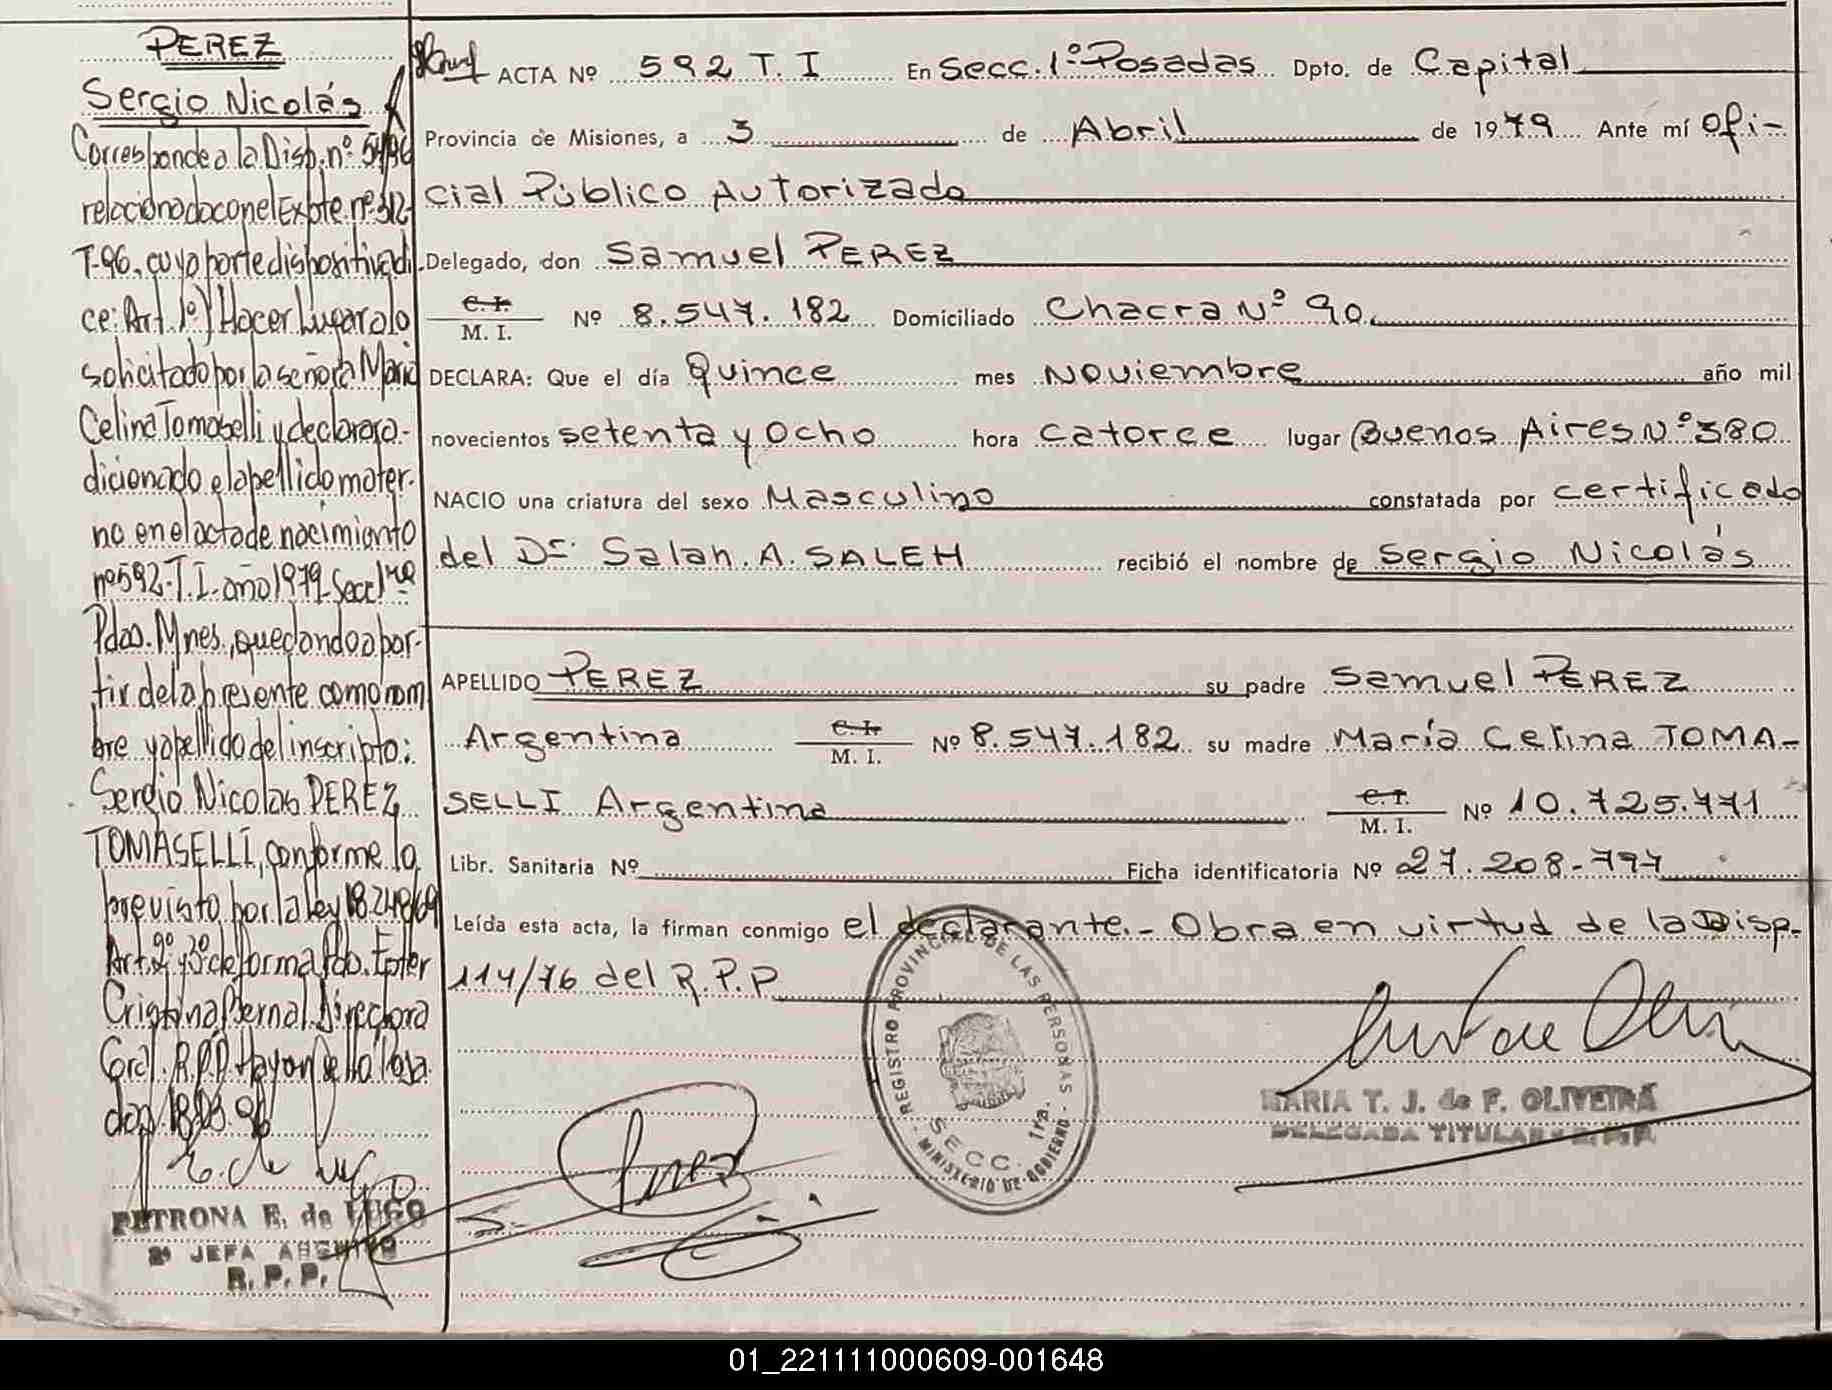 PEREZ
Sergio Nicolás
Corresponde a la Disp. nº 54/96
relacionada con el Expte. nº 312-
T-96, cuya parte dispositiva di-
ce: Art. 1º) Hacer Lugar a lo
solicitado por la señora María
Celina Tomaselli y declarar a-
dicionado el apellido mater-
no en el acta de nacimiento
nº 592-T.I-año 1979-Secc 1ra
Pdas. Mnes, quedando a par-
tir de la presente como nom
bre y apellido del inscripto:
Sergio Nicolas PEREZ
TOMASELLI, conforme lo
previsto por la ley 18.248/69
Art. 2º y 3º de forma. Fdo. Ester
Cristina Bernal Directora
Gral. R.P.P. Hay un sello Posa
das, 18.03.96
PETRONA E. de LUGO
2ª JEFA ARCHIVO
R. P. P.
ACTA Nº 592 T. I En Secc. 1º Posadas Dpto. de Capital
Provincia de Misiones, a 3 de Abril de 1979 Ante mí Ofi-
cial Público Autorizado
Delegado, don Samuel PEREZ
C. I.
M. I. Nº 8.547.182 Domiciliado Chacra Nº 90.
DECLARA: Que el día Quince mes Noviembre año mil
novecientos setenta y ocho hora catorce lugar Buenos Aires Nº 380
NACIO una criatura del sexo Masculino constatada por certificado
del Dr. Salah. A. SALEH recibió el nombre de Sergio Nicolás
APELLIDO PEREZ su padre Samuel PEREZ
Argentina C. I.
M. I. Nº 8.547.182 su madre María Celina TOMA-
SELLI Argentina C. I.
M. I. Nº 10.725.771
Libr. Sanitaria Nº Ficha identificatoria Nº 27.208-797
Leída esta acta, la firman conmigo el declarante.- Obra en virtud de la Disp.
114/76 del R.P.P
REGISTRO PROVINCIAL DE LAS PERSONAS
SECC. 1ra.
MINISTERIO DE GOBIERNO
MARIA T. J. de F. OLIVEIRA
DELEGADA TITULAR R.P.P.
01_221111000609-001648